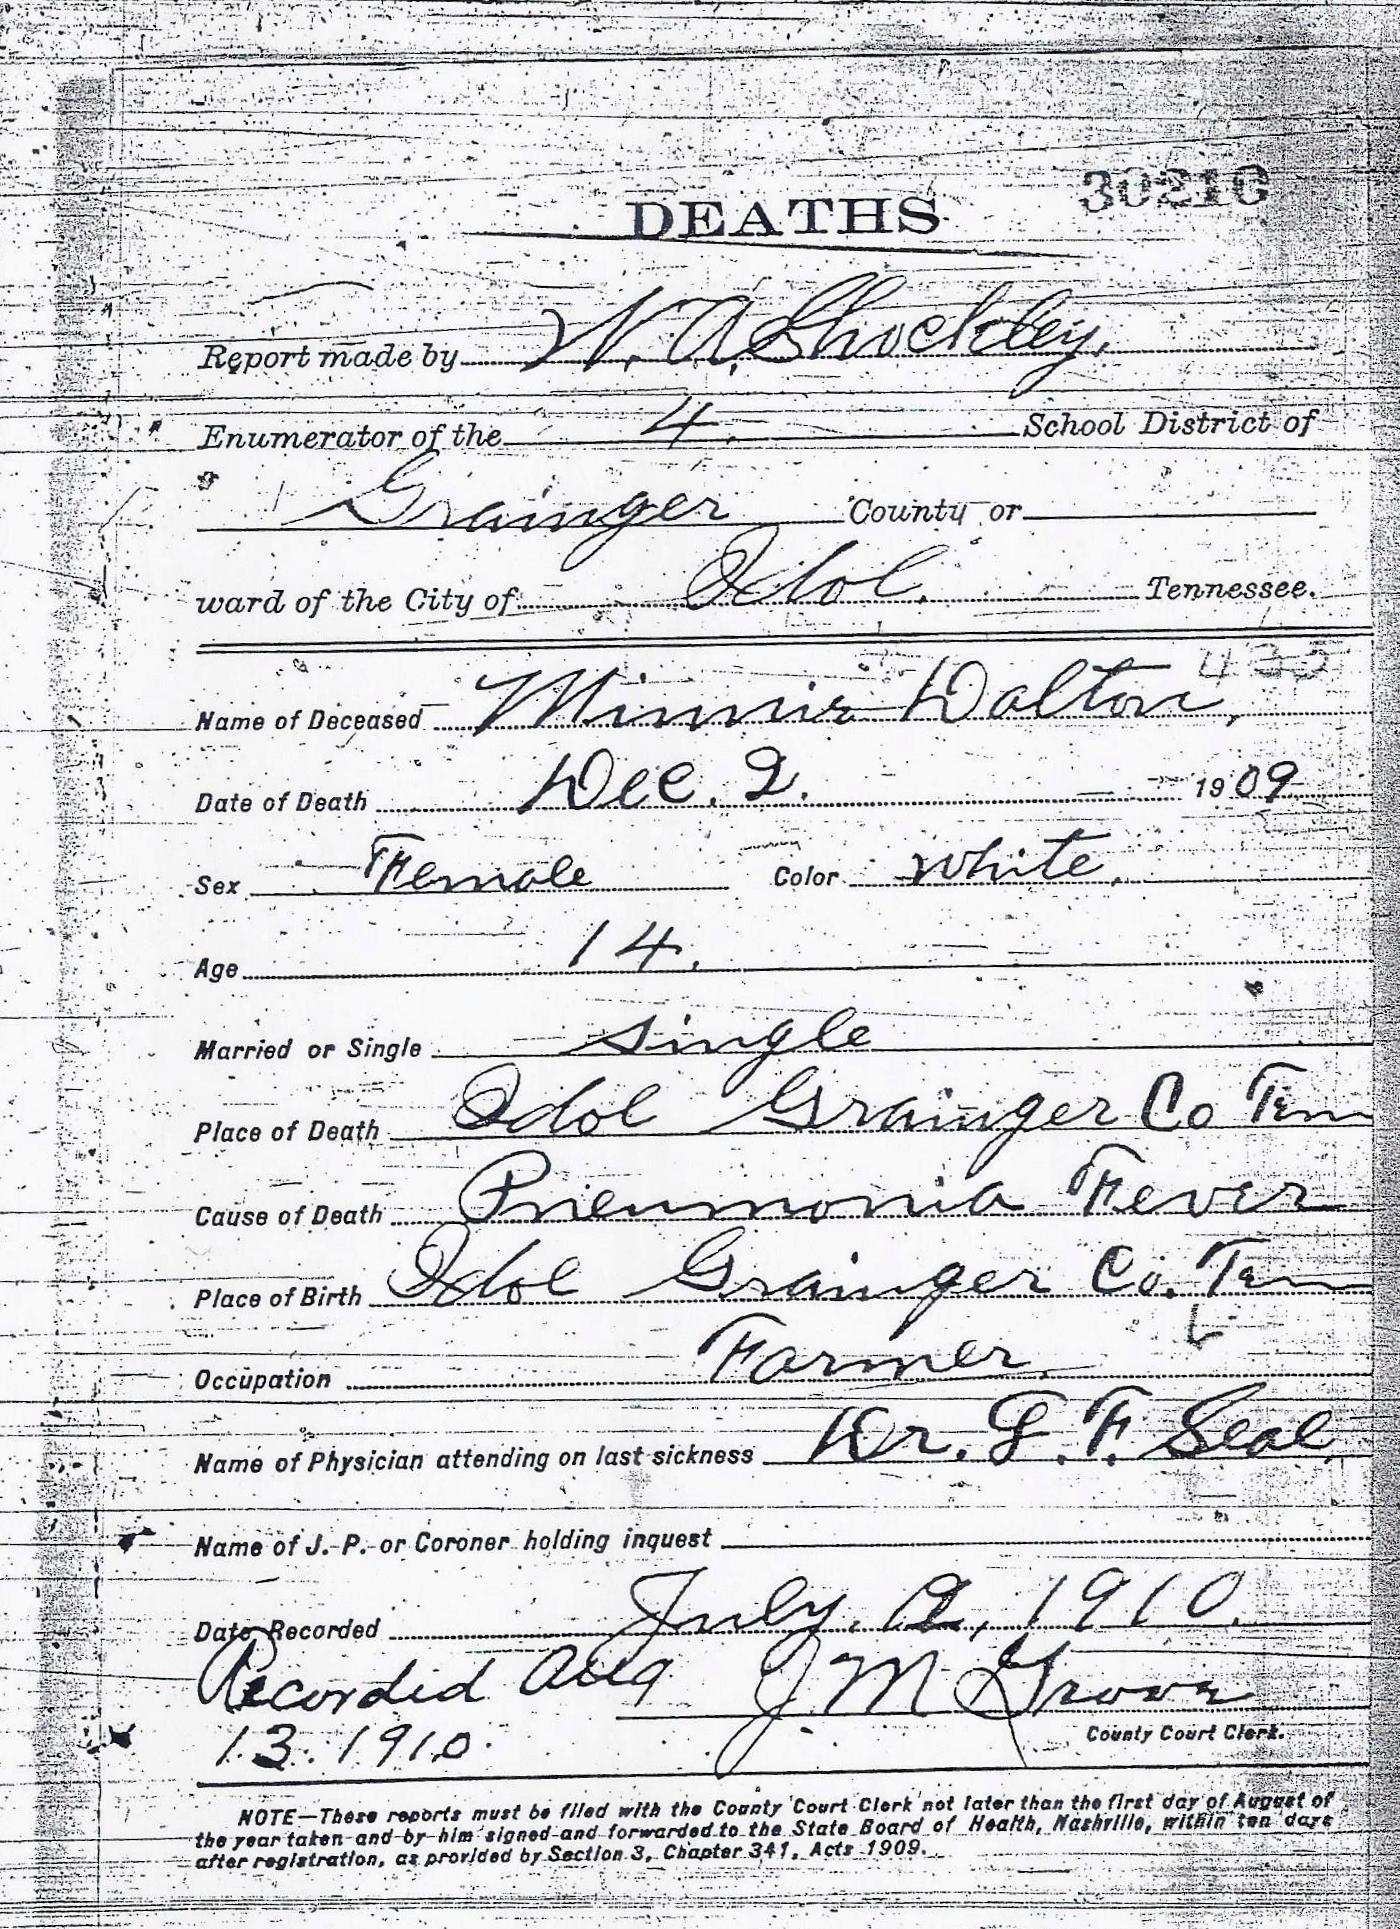 30210
DEATHS
Report made by N. A. Shockley.
Enumerator of the 4. School District of
Grainger County or
ward of the City of Idol. Tennessee.
Name of Deceased Minnie Dalton,
Date of Death Dec. 2. 1909
Sex Female Color White.
Age 14.
Married or Single single
Place of Death Idol Grainger Co Tenn
Cause of Death Pneumonia Fever
Place of Birth Idol Grainger Co. Tenn
Occupation Farmer
Name of Physician attending on last sickness Dr. G. F. Seal
Name of J. P. or Coroner holding inquest
Date Recorded July, 1910.
Recorded Aug J M
13. 1910. County Court Clerk.
NOTE—These reports must be filed with the County Court Clerk not later than the first day of August of
the year taken and by him signed and forwarded to the State Board of Health, Nashville, within ten days
after registration, as provided by Section 3, Chapter 341, Acts 1909.